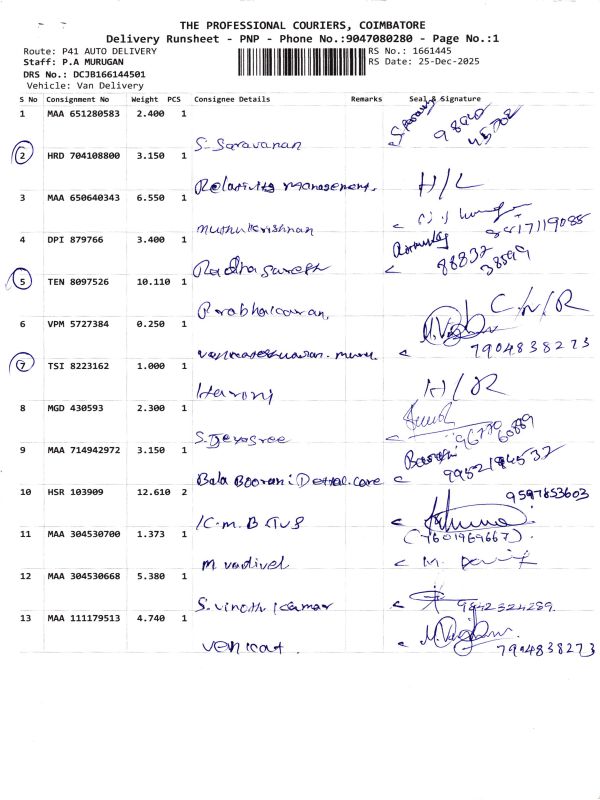 THE PROFESSIONAL COURIERS, COIMBATORE
Delivery Runsheet - PNP - Phone No.:9047080280 - Page No.:1
Route: P41 AUTO DELIVERY RS No.: 1661445
Staff: P.A MURUGAN RS Date: 25-Dec-2025
DRS No.: DCJB166144501
Vehicle: Van Delivery
S No Consignment No Weight PCS Consignee Details Remarks Seal & Signature
1 MAA 651280583 2.400 1
S. Saravanan
2 HRD 704108800 3.150 1
Relativity management. H/L
3 MAA 650640343 6.550 1
muthukrishnan
4 DPI 879766 3.400 1
Radha Suresh 88832 38599
5 TEN 8097526 10.110 1
Prabhakaran. C/N/R
6 VPM 5727384 0.250 1
7904838273
7 TSI 8223162 1.000 1
H/R
8 MGD 430593 2.300 1
S. Jeyasree 96779 60889
9 MAA 714942972 3.150 1
Bala Boorani Dental care
10 HSR 103909 12.610 2 9597853603
K.m.B TVS (7601969667).
11 MAA 304530700 1.373 1
m vadivel
12 MAA 304530668 5.380 1
S. vinoth kumar 9842324289.
13 MAA 111179513 4.740 1
venkat. 7904838273